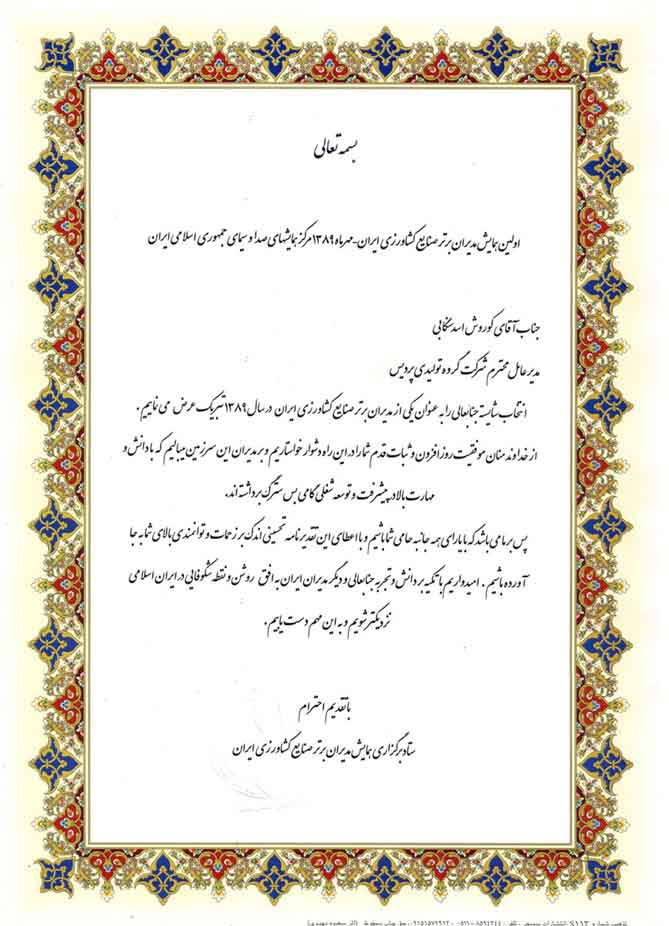 بسمه تعالی
اولین همایش مدیران برتر صنایع کشاورزی ایران - مهرماه ۱۳۸۹ مرکز همایشهای صدا و سیمای جمهوری اسلامی ایران
جناب آقای کوروش اسدسنگابی
مدیرعامل محترم شرکت گروه تولیدی پردیس
انتخاب شایسته جنابعالی را به عنوان یکی از مدیران برتر صنایع کشاورزی ایران در سال ۱۳۸۹ تبریک عرض می نماییم .
از خداوند منان موفقیت روز افزون و ثبات قدم شما را در این راه دشوار خواستاریم و بر مدیران این سرزمین میبالیم که با دانش و
مهارت بالا در پیشرفت و توسعه شغلی گامی بس سترگ برداشته اند.
پس بر ما می باشد که با یارای همه جانبه حامی شما باشیم و با اعطای این تقدیرنامه تحسینی اندک بر زحمات و توانمندی بالای شما به جا
آورده باشیم . امیدواریم با تکیه بر دانش و تجربه جنابعالی و دیگر مدیران ایران به افق روشن و نقطه شکوفایی در ایران اسلامی
نزدیکتر شویم و به این مهم دست یابیم .
با تقدیم احترام
ستاد برگزاری همایش مدیران برتر صنایع کشاورزی ایران